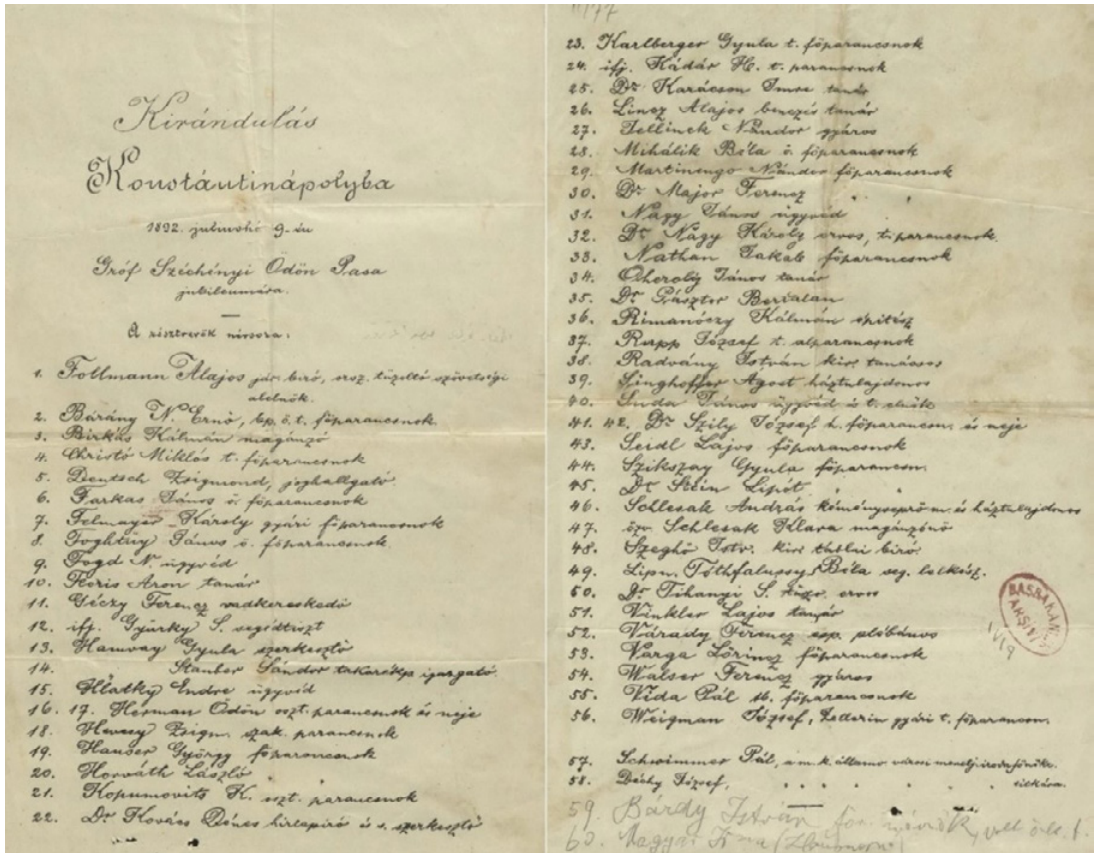 Kirándulás
Konstántinápolyba
1892. julius hó 9-én
Gróf Széchényi Ödön Pasa
jubileumára.
A résztvevők névsora.
1. Follmann Alajos jár. biró, orsz. tűzoltó szövetségi
alelnök.
2. Bárány N. Ernő, bp. ö. t. főparancsnok
3. Birkás Kálmán magánzó
4. Christó Miklós t. főparancsnok
5. Deutsch Zsigmond, joghallgató
6. Farkas János ö. főparancsnok
7. Felmayer Károly gyári főparancsnok
8. János ö. főparancsnok
9. N. ügyvéd
10. Floris Áron tanár
11. Géczy Ferencz vadkereskedő
12. ifj. Gyürky S. segédtiszt
13. Hamvay Gyula szerkesztő
14. Stauber Sándor takarékp. igazgató
15. Hlatky Endre ügyvéd
16. 17. Herman Ödön oszt. parancsnok és neje
18. Zsigm. szak. parancsnok
19. Hauser György főparancsnok
20. Horváth László "
21. Kopumovits K. oszt. parancsnok
22. Dr Kovács Dénes hirlapiró és s. szerkesztő
23. Karlberger Gyula t. főparancsnok
24. ifj. Kádár H. t. parancsnok
25. Dr Karácson Imre tanár
26. Lincz Alajos benczés tanár
27. Jellinek Nándor gyáros
28. Mihálik Béla ö. főparancsnok
29. Martinengo Nándor főparancsnok
30. Dr Major Ferencz " "
31. Nagy János ügyvéd
32. Dr Nagy Károly orvos, t. parancsnok
33. Nathan Jakab főparancsnok
34. János tanár
35. Dr Pásztor Bertalan
36. Rimanóczy Kálmán épitész
37. Rupp József t. alparancsnok
38. Radvány István kir. tanácsos
39. Singhoffer Ágost háztulajdonos
40. Suda János ügyvéd és t. elnök
41. 42. Dr Szily József h. főparancsn. és neje
43. Seidl Lajos főparancsnok
44. Szikszay Gyula főparancsn.
45. Dr Stein Lipót " "
46. Schlesak András kéményseprő m. és háztulajdonos
47. özv. Schlesak Klara magánzónő
48. Szeghő Istv. kir. táblai biró
49. Tóthfalussy Béla seg. lelkész.
50. Dr Tihanyi S. orvos
51. Vinkler Lajos tanár
52. Várady Ferencz esp. plébános
53. Varga Lőrincz főparancsnok
54. Walser Ferencz gyáros
55. Vida Pál főparancsnok
56. Weigman József, gyári t. főparancsn.
57. Schwimmer Pál, a m. k. államv. városi menetj. iroda főnöke.
58. Déchy József, " " " " " titkára.
59. Bárdy István
60. Magyar
BAŞBAKANLIK
ARŞİVİ